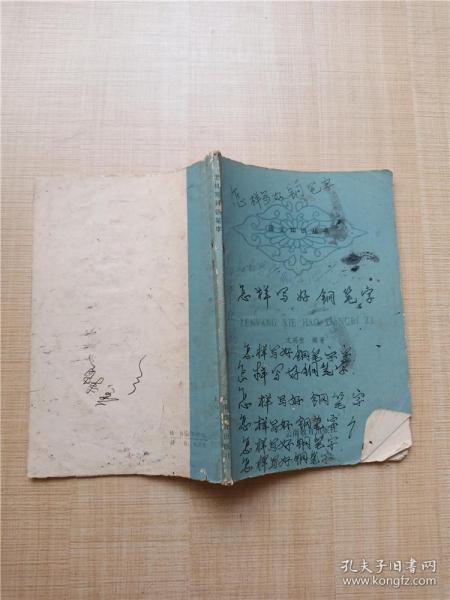 怎样写好钢笔字
语文知识丛书
怎样写好钢笔字
ZENYANG XIE HAO GANGBI ZI
编著
怎样写好钢笔字
怎样写好钢笔字
怎样写好钢笔字
怎样写好钢笔字
怎样写好钢笔字
怎样写好钢笔字
怎样写好钢笔字
孔夫子旧书网
www.kongfz.com